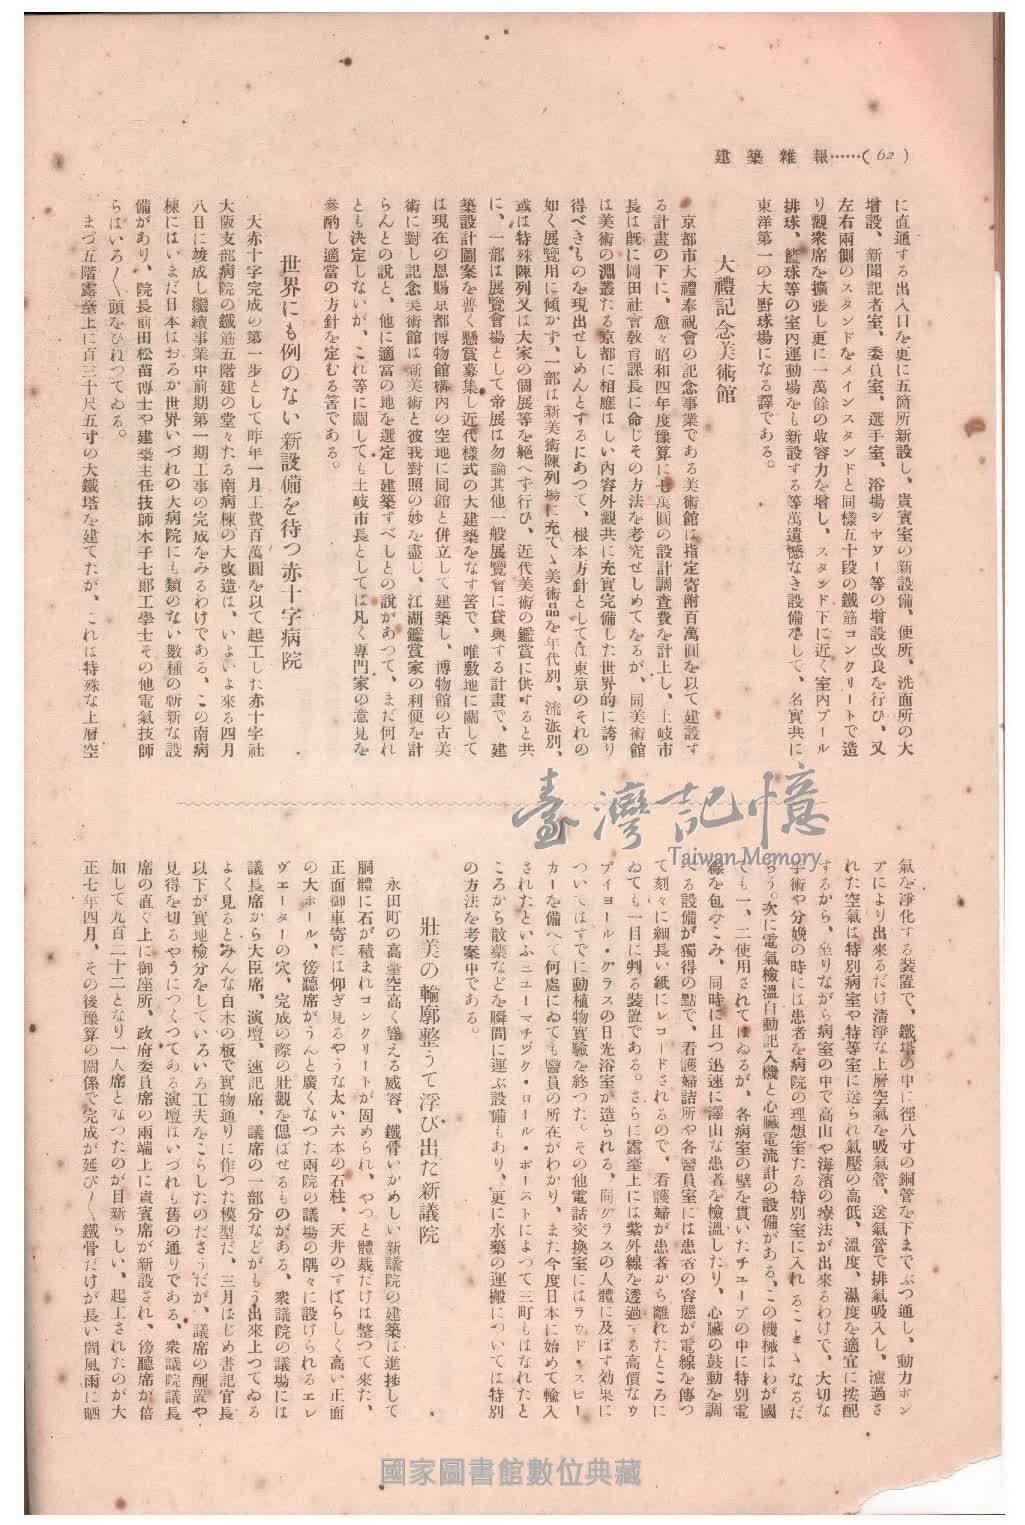 建築雜報……( 62 )
に直通する出入口を更に五箇所新設し、貴賓室の新設備、便所、洗面所の大
增設、新聞記者室、委員室、選手室、浴場シヤワー等の增設改良を行ひ、又
左右兩側のスタンドをメインスタンドと同樣五十段の鐵筋コンクリートで造
り觀衆席を擴張し更に一萬餘の收容力を增し、スタンド下に近く室內プール
排球、籃球等の室內運動場をも新設する等萬遺憾なき設備をして、名實共に
東洋第一の大野球場になる譯である。
大禮記念美術館
京都市大禮奉祝會の記念事業である美術館は指定寄附百萬圓を以て建設す
る計畫の下に、愈々昭和四年度豫算に七萬圓の設計調査費を計上し、土岐市
長は既に岡田社會敎育課長に命じその方法を考究せしめてゐるが、同美術館
は美術の淵叢たる京都に相應はしい內容外觀共に充實完備した世界的に誇り
得べきものを現出せしめんとするにあつて、根本方針としては東京のそれの
如く展覽用に傾かず、一部は新美術陳列場に充てゝ美術品を年代別、流派別、
或は特殊陳列又は大家の個展等を絕へず行ひ、近代美術の鑑賞に供すると共
に、一部は展覽會場として帝展は勿論其他一般展覽會に貸與する計畫で、建
築設計圖案を普く懸賞募集し近代樣式の大建築をなす筈で、唯敷地に關して
は現在の恩賜京都博物館構內の空地に同館と併立して建築し、博物館の古美
術に對し記念美術館は新美術と彼我對照の妙を盡し、江湖鑑賞家の利便を計
らんとの說と、他に適當の地を選定し建築すべしとの說があつて、まだ何れ
とも決定しないが、これ等に關しても土岐市長としては凡く專門家の意見を
參酌し適當の方針を定むる筈である。
世界にも例のない新設備を待つ赤十字病院
大赤十字完成の第一步として昨年一月工費百萬圓を以て起工した赤十字社
大阪支部病院の鐵筋五階建の堂々たる南病棟の大改造は、いよいよ來る四月
八日に竣成し繼續事業中前期第一期工事の完成をみるわけである、この南病
棟にはいまだ日本はおろか世界いづれの大病院にも類のない數種の斬新な設
備があり、院長前田松苗博士や建築主任技師木子七郎工學士その他電氣技師
らはいろ〱頭をひねつてゐる。
まづ五階露臺上に百三十尺五寸の大鐵塔を建てたが、これは特殊な上層空
氣を淨化する裝置で、鐵塔の中に徑八寸の銅管を下までぶつ通し、動力ポン
プにより出來るだけ淸淨な上層空氣を吸氣管、送氣管で排氣吸入し、濾過さ
れた空氣は特別病室や特等室に送られ氣壓の高低、溫度、濕度を適宜に按配
するから、坐りながら病室の中で高山や海濱の療法が出來るわけで、大切な
手術や分娩の時には患者を病院の理想室たる特別室に入れることゝなるだ
らう。次に電氣檢溫自動記入機と心臟電流計の設備がある、この機械はわが國
でも一、二使用されてはゐるが、各病室の壁を貫いたチユーブの中に特別電
線を包みこみ、同時に且つ迅速に澤山な患者を檢溫したり、心臟の鼓動を調
べる設備が獨得の點で、看護婦詰所や各醫員室には患者の容態が電線を傳つ
て刻々に細長い紙にレコードされるので、看護婦が患者から離れたところに
ゐても一目に判る裝置である。さらに露臺上には紫外線を透過する高價なヴ
アイヨール・グラスの日光浴室が造られる、同グラスの人體に及ぼす効果に
ついてはすでに動植物實驗を終つた。その他電話交換室にはラウド・スピー
カーを備へて何處にゐても醫員の所在がわかり、また今度日本に始めて輸入
されたといふニユーマチツク・ロール・ポーストによつて三町もはなれたと
ころから散藥などを瞬間に運ぶ設備もあり、更に水藥の運搬については特別
の方法を考案中である。
壯美の輪廓整うて浮び出た新議院
永田町の高臺空高く聳える威容、鐵骨いかめしい新議院の建築は進捗して
胴體に石が積まれコンクリートが固められ、やつと體裁だけは整つて來た、
正面御車寄には仰ぎ見るやうな太い六本の石柱、天井のすばらしく高い正面
の大ホール、傍聽席がうんと廣くなつた兩院の議場の隅々に設けられるエレ
ヴエーターの穴、完成の際の壯觀を偲ばせるものがある、衆議院の議場には
議長席から大臣席、演壇、速記席、議席の一部分などがもう出來上つてゐる
よく見るとみんな白木の板で實物通りに作つた模型だ、三月はじめ書記官長
以下が實地檢分をしていろいろ工夫をこらしたのださうだが、議席の配置や
見得を切るやうにつくつてある演壇はいづれも舊の通りである、衆議院議長
席の直ぐ上に御座所、政府委員席の兩端上に貴賓席が新設され、傍聽席が倍
加して九百二十二となり一人席となつたのが目新らしい、起工されたのが大
正七年四月、その後豫算の關係で完成が延び〱鐵骨だけが長い間風雨に晒
臺灣記憶
Taiwan Memory
國家圖書館數位典藏